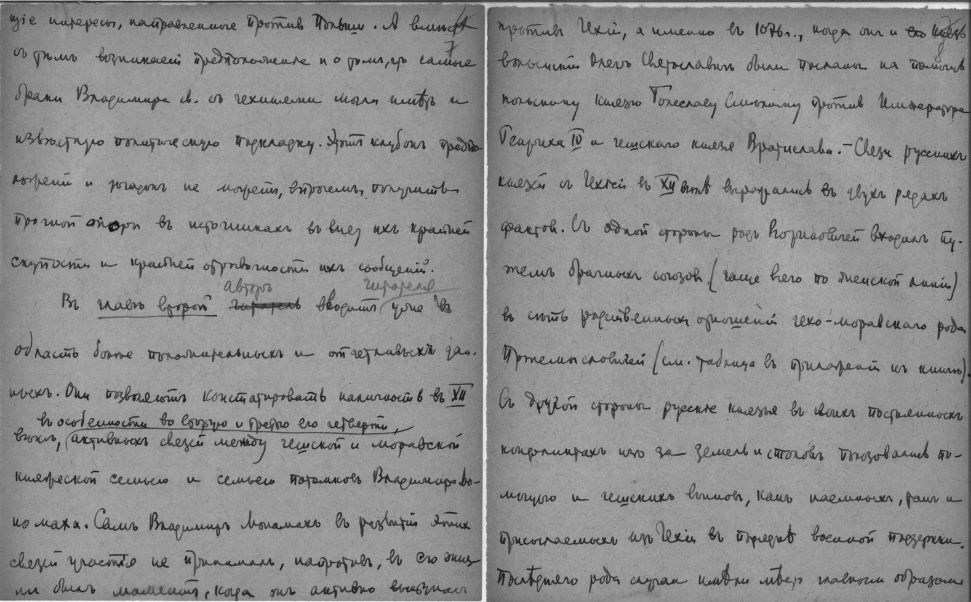 щіе интересы, направленные противъ Польши. А вмѣстѣ
съ тѣмъ возникаетъ предположеніе и о томъ, что самые
браки Владимира св. съ чехинями могли имѣть и
извѣстную политическую подкладку. Этотъ клубокъ предпо-
ложеній и догадокъ не можетъ, впрочемъ, получить
прочной опоры въ источникахъ въ виду ихъ крайней
скупости и крайней отрывочности ихъ сообщеній.
авторъ читателя
Въ главѣ второй вводитъ уже въ
область более положительныхъ и отчетливыхъ дан-
ныхъ. Они позволяютъ констатировать наличность въ XII
въ особенности во вторую и третью его четверти,
вѣкѣ, активныхъ связей между чешской и моравской
княжеской семьею и семьею потомковъ Владимира Мо-
номаха. Самъ Владимиръ Мономахъ въ развитіи этихъ
связей участія не принималъ, напротивъ, въ его жиз-
ни былъ моментъ, когда онъ активно выступалъ
противъ Чехіи, а именно въ 1076 г., когда онъ и
волынскій Олегъ Святославичъ были посланы на помощь
польскому князю Болеславу Смѣлому противъ Императора
Генриха IV и чешскаго князя Вратислава. – Связи русскихъ
князей съ Чехіей въ XII вѣкѣ выразились въ двухъ рядахъ
фактовъ. Съ одной стороны родъ Рюриковичей входилъ пу-
темъ брачныхъ союзовъ (чаще всего по женской линіи)
въ сѣть родственныхъ отношеній чехо-моравскаго рода
Пржемысловичей (см. таблица въ приложеніи къ книгѣ).
Съ другой стороны русскіе князья въ своихъ постоянныхъ
конфликтахъ изъ за земель и столовъ пользовались по-
мощью и чешскихъ воиновъ, какъ наемныхъ, такъ и
присылаемыхъ изъ Чехіи въ порядкѣ военной поддержки.
Послѣдняго рода случаи имѣли мѣсто главнымъ образомъ